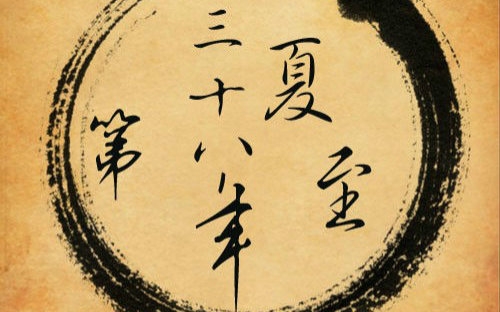 第
三十八年
夏至